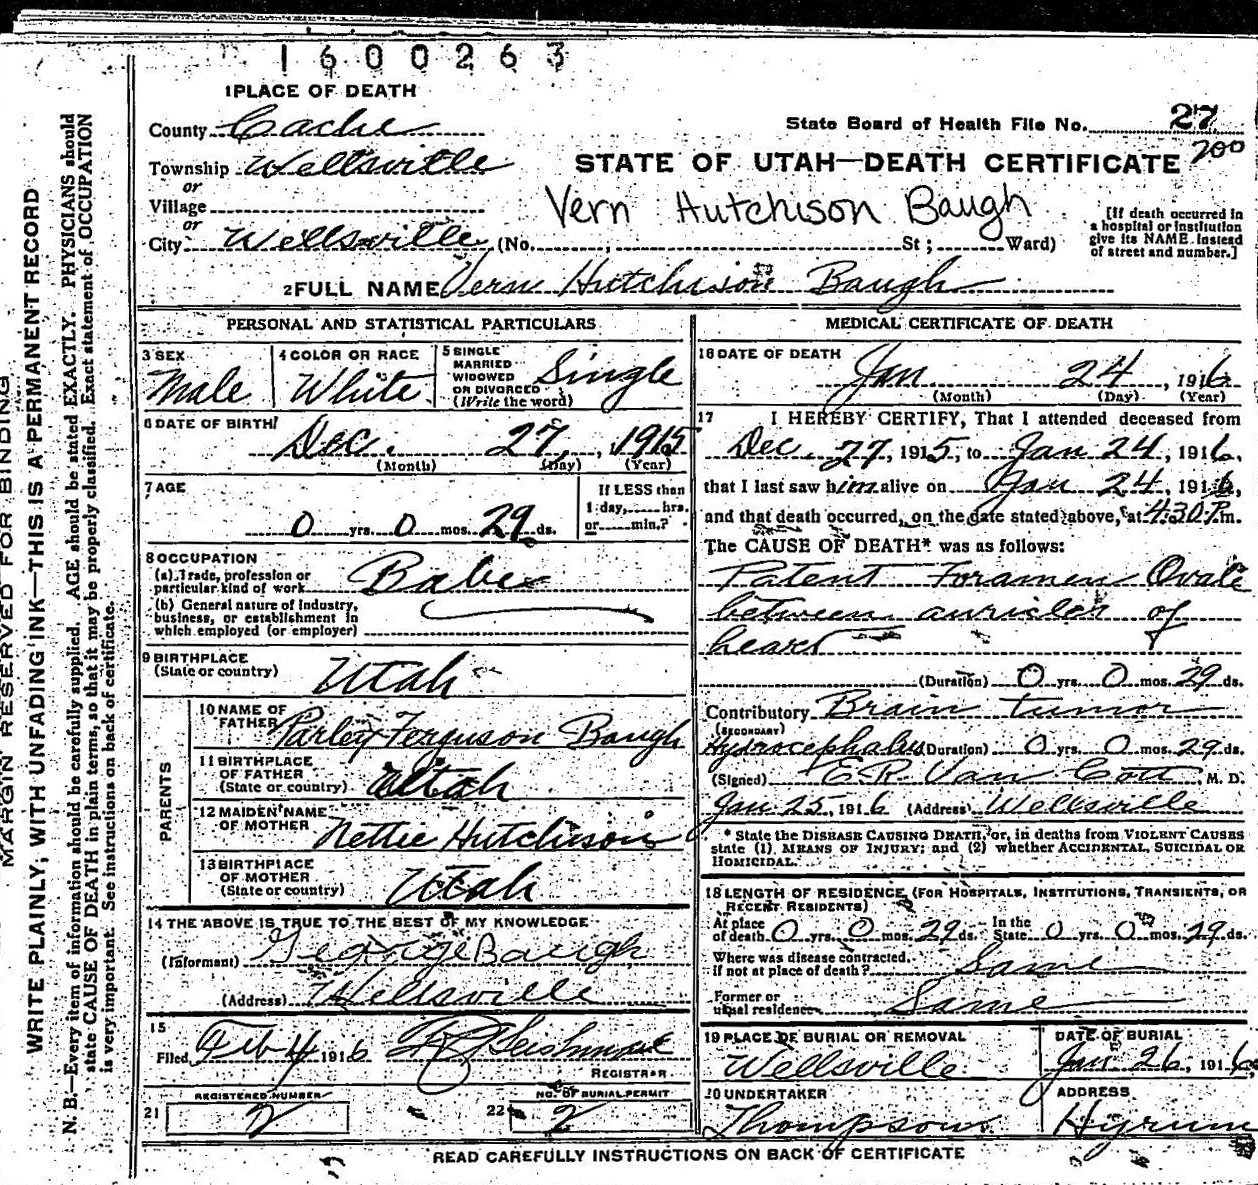 1600263
1 PLACE OF DEATH
County Cache
State Board of Health File No. 27
200
Township Wellsville
STATE OF UTAH—DEATH CERTIFICATE
or
Village
Vern Hutchison Baugh
or
City Wellsville (No. St; Ward)
[If death occurred in
a hospital or institution
give its NAME instead
of street and number.]
2 FULL NAME Vern Hutchison Baugh
PERSONAL AND STATISTICAL PARTICULARS
3 SEX
Male
4 COLOR OR RACE
White
5 SINGLE
MARRIED
WIDOWED
OR DIVORCED
(Write the word)
Single
6 DATE OF BIRTH
Dec. 27, 1915
(Month) (Day) (Year)
7 AGE
0 yrs. 0 mos. 29 ds.
If LESS than
1 day, hrs.
or min.?
8 OCCUPATION
(a) Trade, profession or
particular kind of work Babe
(b) General nature of industry,
business, or establishment in
which employed (or employer)
9 BIRTHPLACE
(State or country) Utah
PARENTS
10 NAME OF
FATHER Parley Ferguson Baugh
11 BIRTHPLACE
OF FATHER
(State or country) Utah
12 MAIDEN NAME
OF MOTHER Nettie Hutchison
13 BIRTHPLACE
OF MOTHER
(State or country) Utah
14 THE ABOVE IS TRUE TO THE BEST OF MY KNOWLEDGE
(Informant) George Baugh
(Address) Wellsville
15
Filed Feb 4 1916
REGISTRAR
REGISTERED NUMBER
21 2
NO. OF BURIAL PERMIT
22 2
MEDICAL CERTIFICATE OF DEATH
16 DATE OF DEATH
Jan 24, 1916
(Month) (Day) (Year)
17 I HEREBY CERTIFY, That I attended deceased from
Dec. 27, 1915, to Jan 24, 1916,
that I last saw him alive on Jan 24, 1916,
and that death occurred, on the date stated above, at 4:30 P.m.
The CAUSE OF DEATH* was as follows:
Patent Foramen Ovale
between auricles of
heart
(Duration) 0 yrs. 0 mos. 29 ds.
Contributory Brain tumor
(SECONDARY)
Hydrocephalus (Duration) 0 yrs. 0 mos. 29 ds.
(Signed) E.R. Van Cott M. D.
Jan 25, 1916 (Address) Wellsville
* State the DISEASE CAUSING DEATH, or, in deaths from VIOLENT CAUSES
state (1) MEANS OF INJURY; and (2) whether ACCIDENTAL, SUICIDAL OR
HOMICIDAL.
18 LENGTH OF RESIDENCE (FOR HOSPITALS, INSTITUTIONS, TRANSIENTS, OR
RECENT RESIDENTS)
At place
of death 0 yrs. 0 mos. 29 ds. In the
State 0 yrs. 0 mos. 29 ds.
Where was disease contracted,
if not at place of death? Same
Former or
usual residence Same
19 PLACE OF BURIAL OR REMOVAL
Wellsville
DATE OF BURIAL
Jan 26, 1916
20 UNDERTAKER
Thompson
ADDRESS
Hyrum
READ CAREFULLY INSTRUCTIONS ON BACK OF CERTIFICATE
MARGIN RESERVED FOR BINDING
WRITE PLAINLY, WITH UNFADING INK—THIS IS A PERMANENT RECORD
N. B.—Every item of information should be carefully supplied. AGE should be stated EXACTLY. PHYSICIANS should
state CAUSE OF DEATH in plain terms, so that it may be properly classified. Exact statement of OCCUPATION
is very important. See instructions on back of certificate.